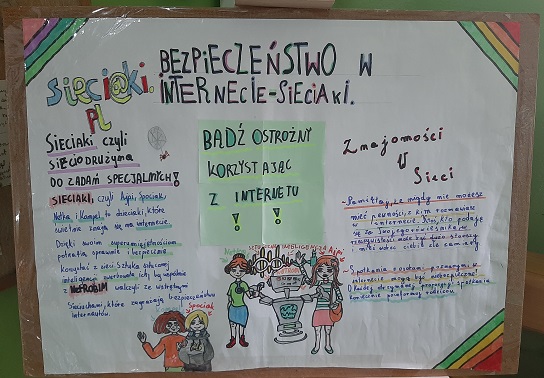 BEZPIECZEŃSTWO W
INTERNECIE-SIECIAKI.
sieci@ki.
PL
SIECIAKI czyli
SIECIODRUŻYNA
DO ZADAŃ SPECJALNYCH!
SIECIAKI, czyli Ajpi, Spociak,
Netka i Kompel, to dzieciaki, które
świetnie znają się na internecie.
Dzięki swoim supermiejętnościom
potrafią, sprawnie i bezpiecznie
Korzystać z sieci. Sztuka
inteligencja
z NetROBIM walczyć ze wstrętnymi
Sieciuchami, które zagrażają bezpieczeństwu
internautów.
BĄDŹ OSTROŻNY
KORZYSTAJĄC
Z INTERNETU
! !
Znajomości
W
Sieci
- Pamiętaj, że nigdy nie możesz
mieć pewności, z kim rozmawiasz
w internecie. Ktoś, kto podaje
się za Twojego rówieśnika, w
rzeczywistości może być dużo starszy
i mieć wobec ciebie złe zamiary
- Spotkania z osobami poznanymi w
internecie mogą być niebezpieczne!
O każdej otrzymanej propozycji spotkania
koniecznie poinformuj rodziców.
Netka
Ajpi
Spociak